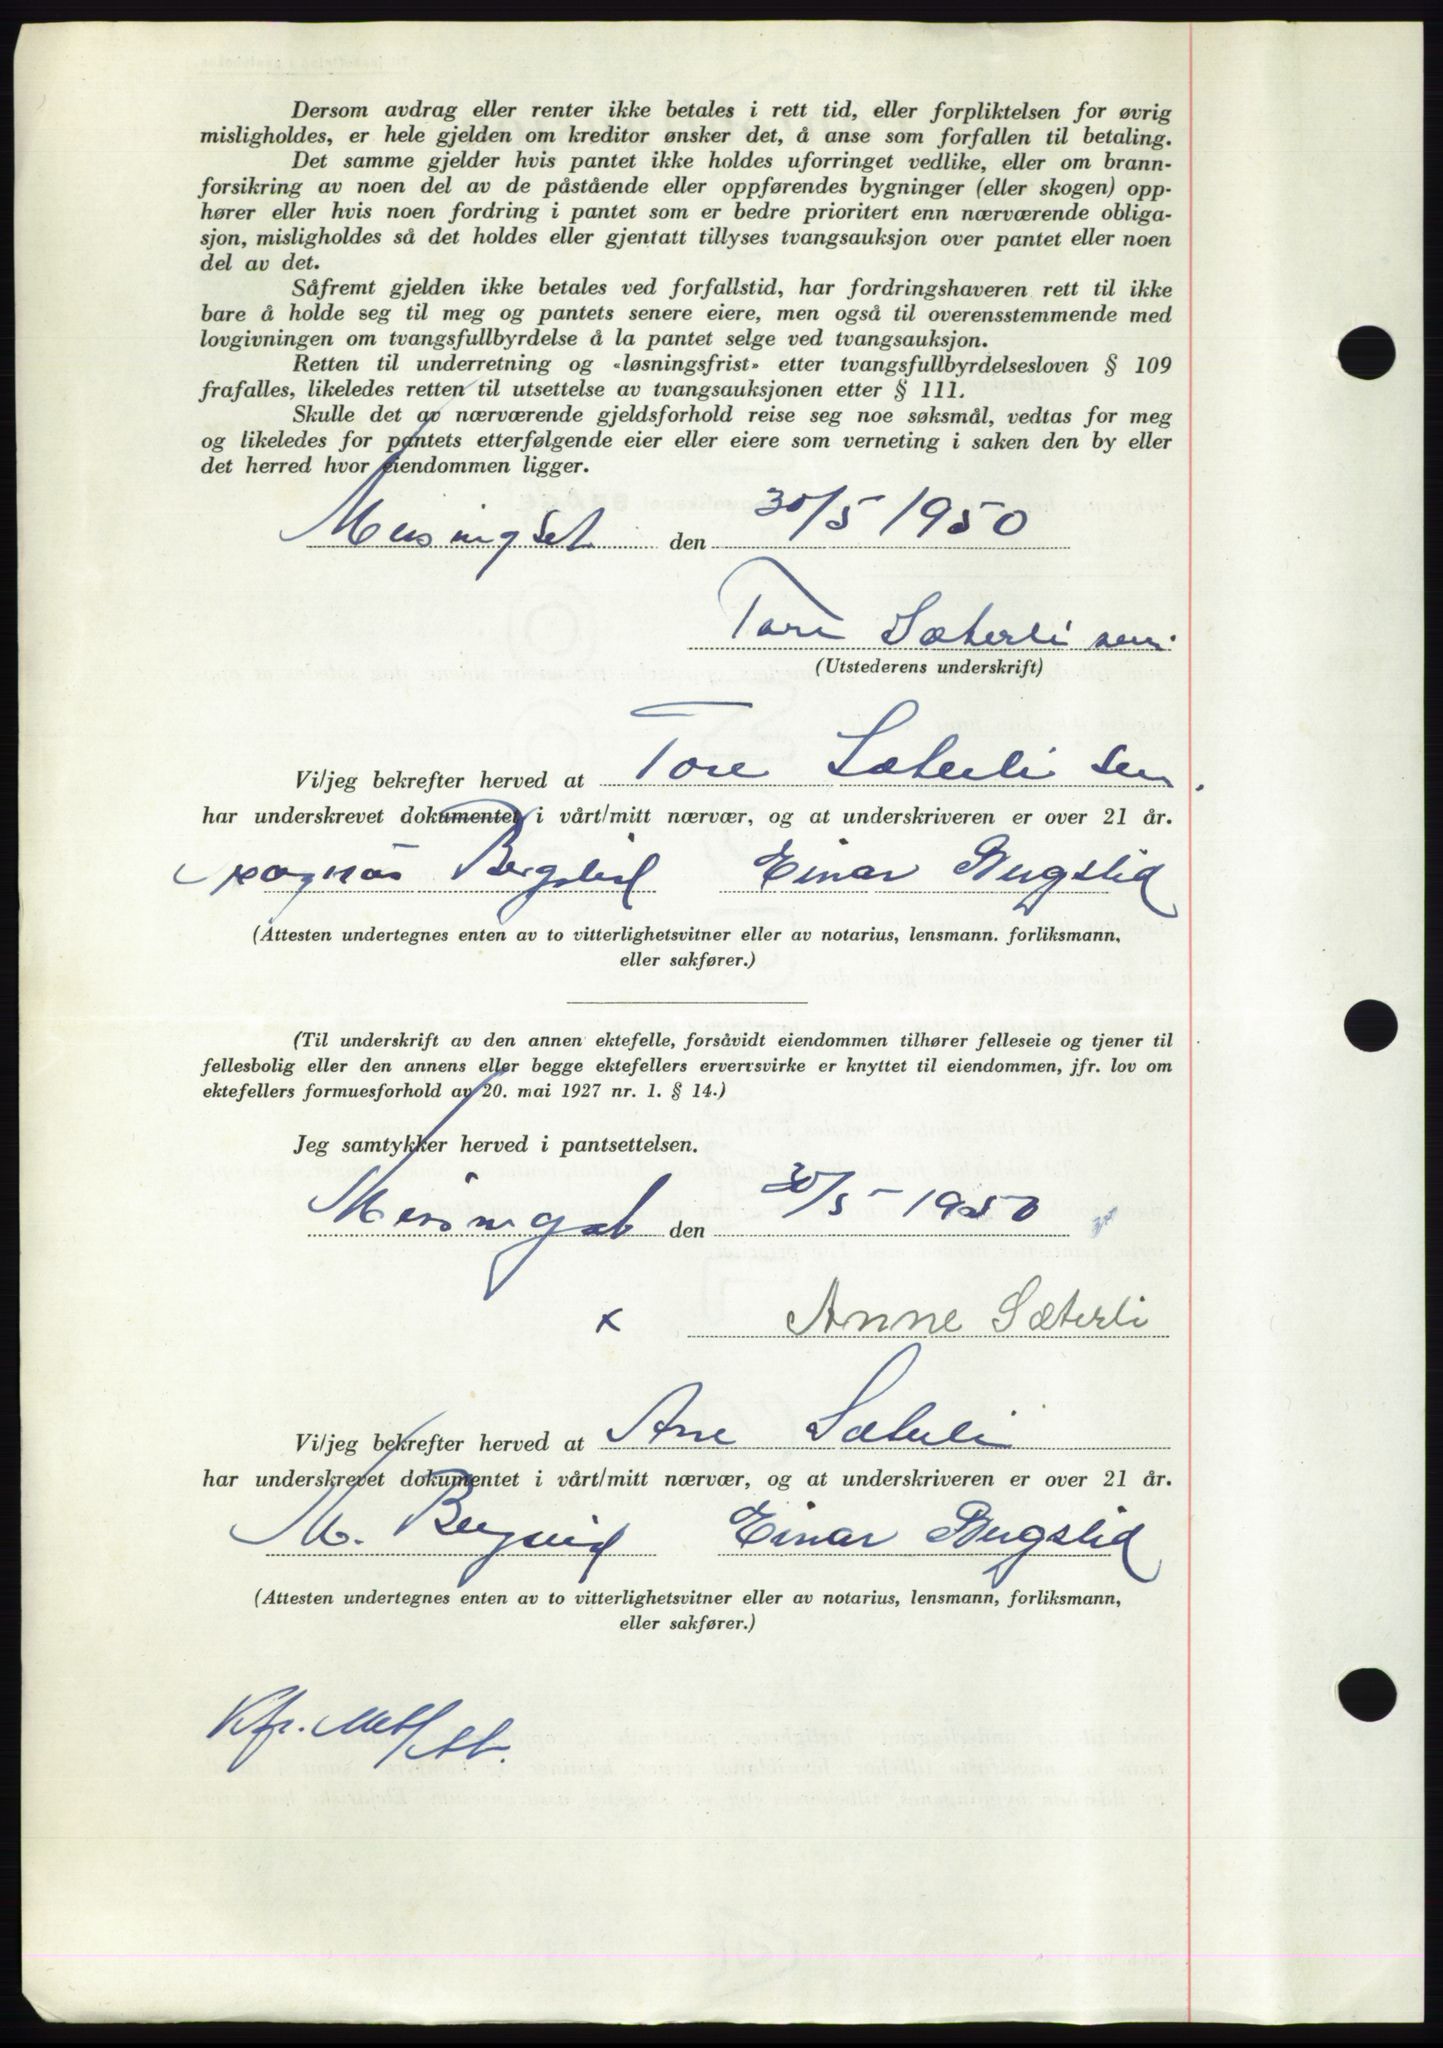 Dersom avdrag eller renter ikke betales i rett tid, eller forpliktelsen for øvrig
misligholdes, er hele gjelden om kreditor ønsker det, å anse som forfallen til betaling.
Det samme gjelder hvis pantet ikke holdes uforringet vedlike, eller om brann-
forsikring av noen del av de påstående eller oppførendes bygninger (eller skogen) opp-
hører eller hvis noen fordring i pantet som er bedre prioritert enn nærværende obliga-
sjon, misligholdes så det holdes eller gjentatt tillyses tvangsauksjon over pantet eller noen
del av det.
Såfremt gjelden ikke betales ved forfallstid, har fordringshaveren rett til ikke
bare å holde seg til meg og pantets senere eiere, men også til overensstemmende med
lovgivningen om tvangsfullbyrdelse å la pantet selge ved tvangsauksjon.
Retten til underretning og «løsningsfrist» etter tvangsfullbyrdelsesloven § 109
frafalles, likeledes retten til utsettelse av tvangsauksjonen etter § 111.
Skulle det av nærværende gjeldsforhold reise seg noe søksmål, vedtas for meg
og likeledes for pantets etterfølgende eier eller eiere som verneting i saken den by eller
det herred hvor eiendommen ligger.
Meisingset den 30/5 1950
Tore Sæterli sen.
(Utstederens underskrift)
Vi/jeg bekrefter herved at Tore Sæterli sen.
har underskrevet dokumentet i vårt/mitt nærvær, og at underskriveren er over 21 år.
Magnus Bergslid Einar Bergslid
(Attesten undertegnes enten av to vitterlighetsvitner eller av notarius, lensmann. forliksmann,
eller sakfører.)
(Til underskrift av den annen ektefelle, forsåvidt eiendommen tilhører felleseie og tjener til
fellesbolig eller den annens eller begge ektefellers erverrsvirke er knyttet til eiendommen, jfr. lov om
ektefellers formuesforhold av 20. mai 1927 nr. 1. § 14.)
Jeg samtykker herved i pantsettelsen.
Meisingset den 30/5-1950
x Anne Sæterli
Vi/jeg bekrefter herved at Ane Sæterli
har underskrevet dokumentet i vårt/mitt nærvær, og at underskriveren er over 21 år.
M. Bergslid Einar Bergslid
(Attesten undertegnes enten av to vitterlighetsvitner eller av notarius, lensmann, forliksmann,
eller sakfører.)
Kfr.